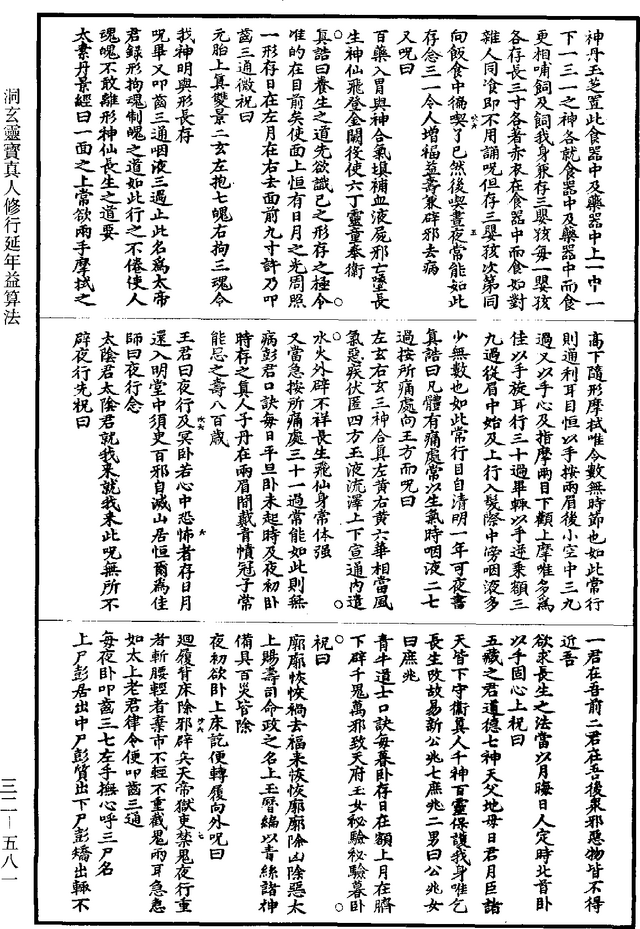 神丹玉芝置此食器中及藥器中上一中一
下一三一之神各就食器中及藥器中而食
更相哺飼及飼我身兼存三嬰孩每一嬰孩
各存長三寸各著赤衣在食器中而食如對
雜人同飡即不用誦呪但存三嬰孩次第同
向飯食中徧喫了已然後喫晝夜常能如此
存念三一令人增福益壽兼辟邪去病
又呪曰
百藥入胃與神合氣填補血液屍邪亡墮長
生神仙飛登金闕後使六丁靈童奉衛
真誥曰養生之道先欲識己之形存之極令
准的在目前矣使面上恒有日月之光周照
一形存日在左月在右去面前九寸許乃叩
齒三通微祝曰
元胎上真雙景二玄左抱七魄右拘三魂令
我神明與形長存
呪畢又叩齒三通咽液三過止此名為太帝
君錄形拘魂制魄之道如此行之不倦使人
魂魄不敢離形神仙長生之道要
太素丹景經曰一面之上常欲兩手摩拭之
高下隨形摩拭唯令數無時節也如此常行
則通利耳目恒以手按兩眉後小空中三九
過又以手心及指摩兩目下顴上摩唯多為
佳以手旋耳行三十過畢輒以手逆乘額三
九過從眉中始及上行入髮際中傍咽液多
少無數也如此常行目自清明一年可夜書
真誥曰凡體有痛處常以生氣時咽液二七
過按所痛處向王方而呪曰
左玄右玄三神合真左黄右黄六華相當風
氣惡疾伏匿四方玉液流澤上下宣通内遣
水火外辟不祥長生飛仙身常体强
又當急按所痛處三十一過常能如此則無
病彭君口訣每日平旦卧未起時及夜初卧
時存之真人子丹在兩眉間戴青幘冠子常
能忌之壽八百歲
王君曰夜行及冥卧若心中恐怖者存日月
還入明堂中須臾百邪自滅山居恒爾為佳
師曰夜行念
太陰君太陰君就我来就我来此呪無所不
辟夜行先祝曰
一君在吾前二君在吾後衆邪惡物皆不得
近吾
欲求長生之法當以月晦日人定時北首卧
以手固心上祝曰
五藏之君道德七神天父地母日君月臣諸
天皆下守衛真人千神百靈保護我身唯乞
長生改故易新公兆七庶兆二男曰公兆女
曰庶兆
青牛道士口訣每暮卧存日在額上月在臍
下辟千鬼萬邪致天府玉女秘驗秘驗暮卧
祝曰
廓廓恢恢禍去福来恢恢廓廓除凶除惡太
上賜壽司命政之名上玉曆編以青絲諸神
備具百災皆除
夜初欲卧上床訖便轉履向外呪曰
迴履背床除邪辟兵天帝獄吏禁鬼夜行重
者斬腰輕者棄市不輕不重截鬼兩耳急急
如太上老君律令便叩齒三通
每夜卧叩齒三七左手撫心呼三尸名
上尸彭居出中尸彭質出下尸彭矯出輒不
洞玄靈寶真人修行延年益算法
三二—五八一